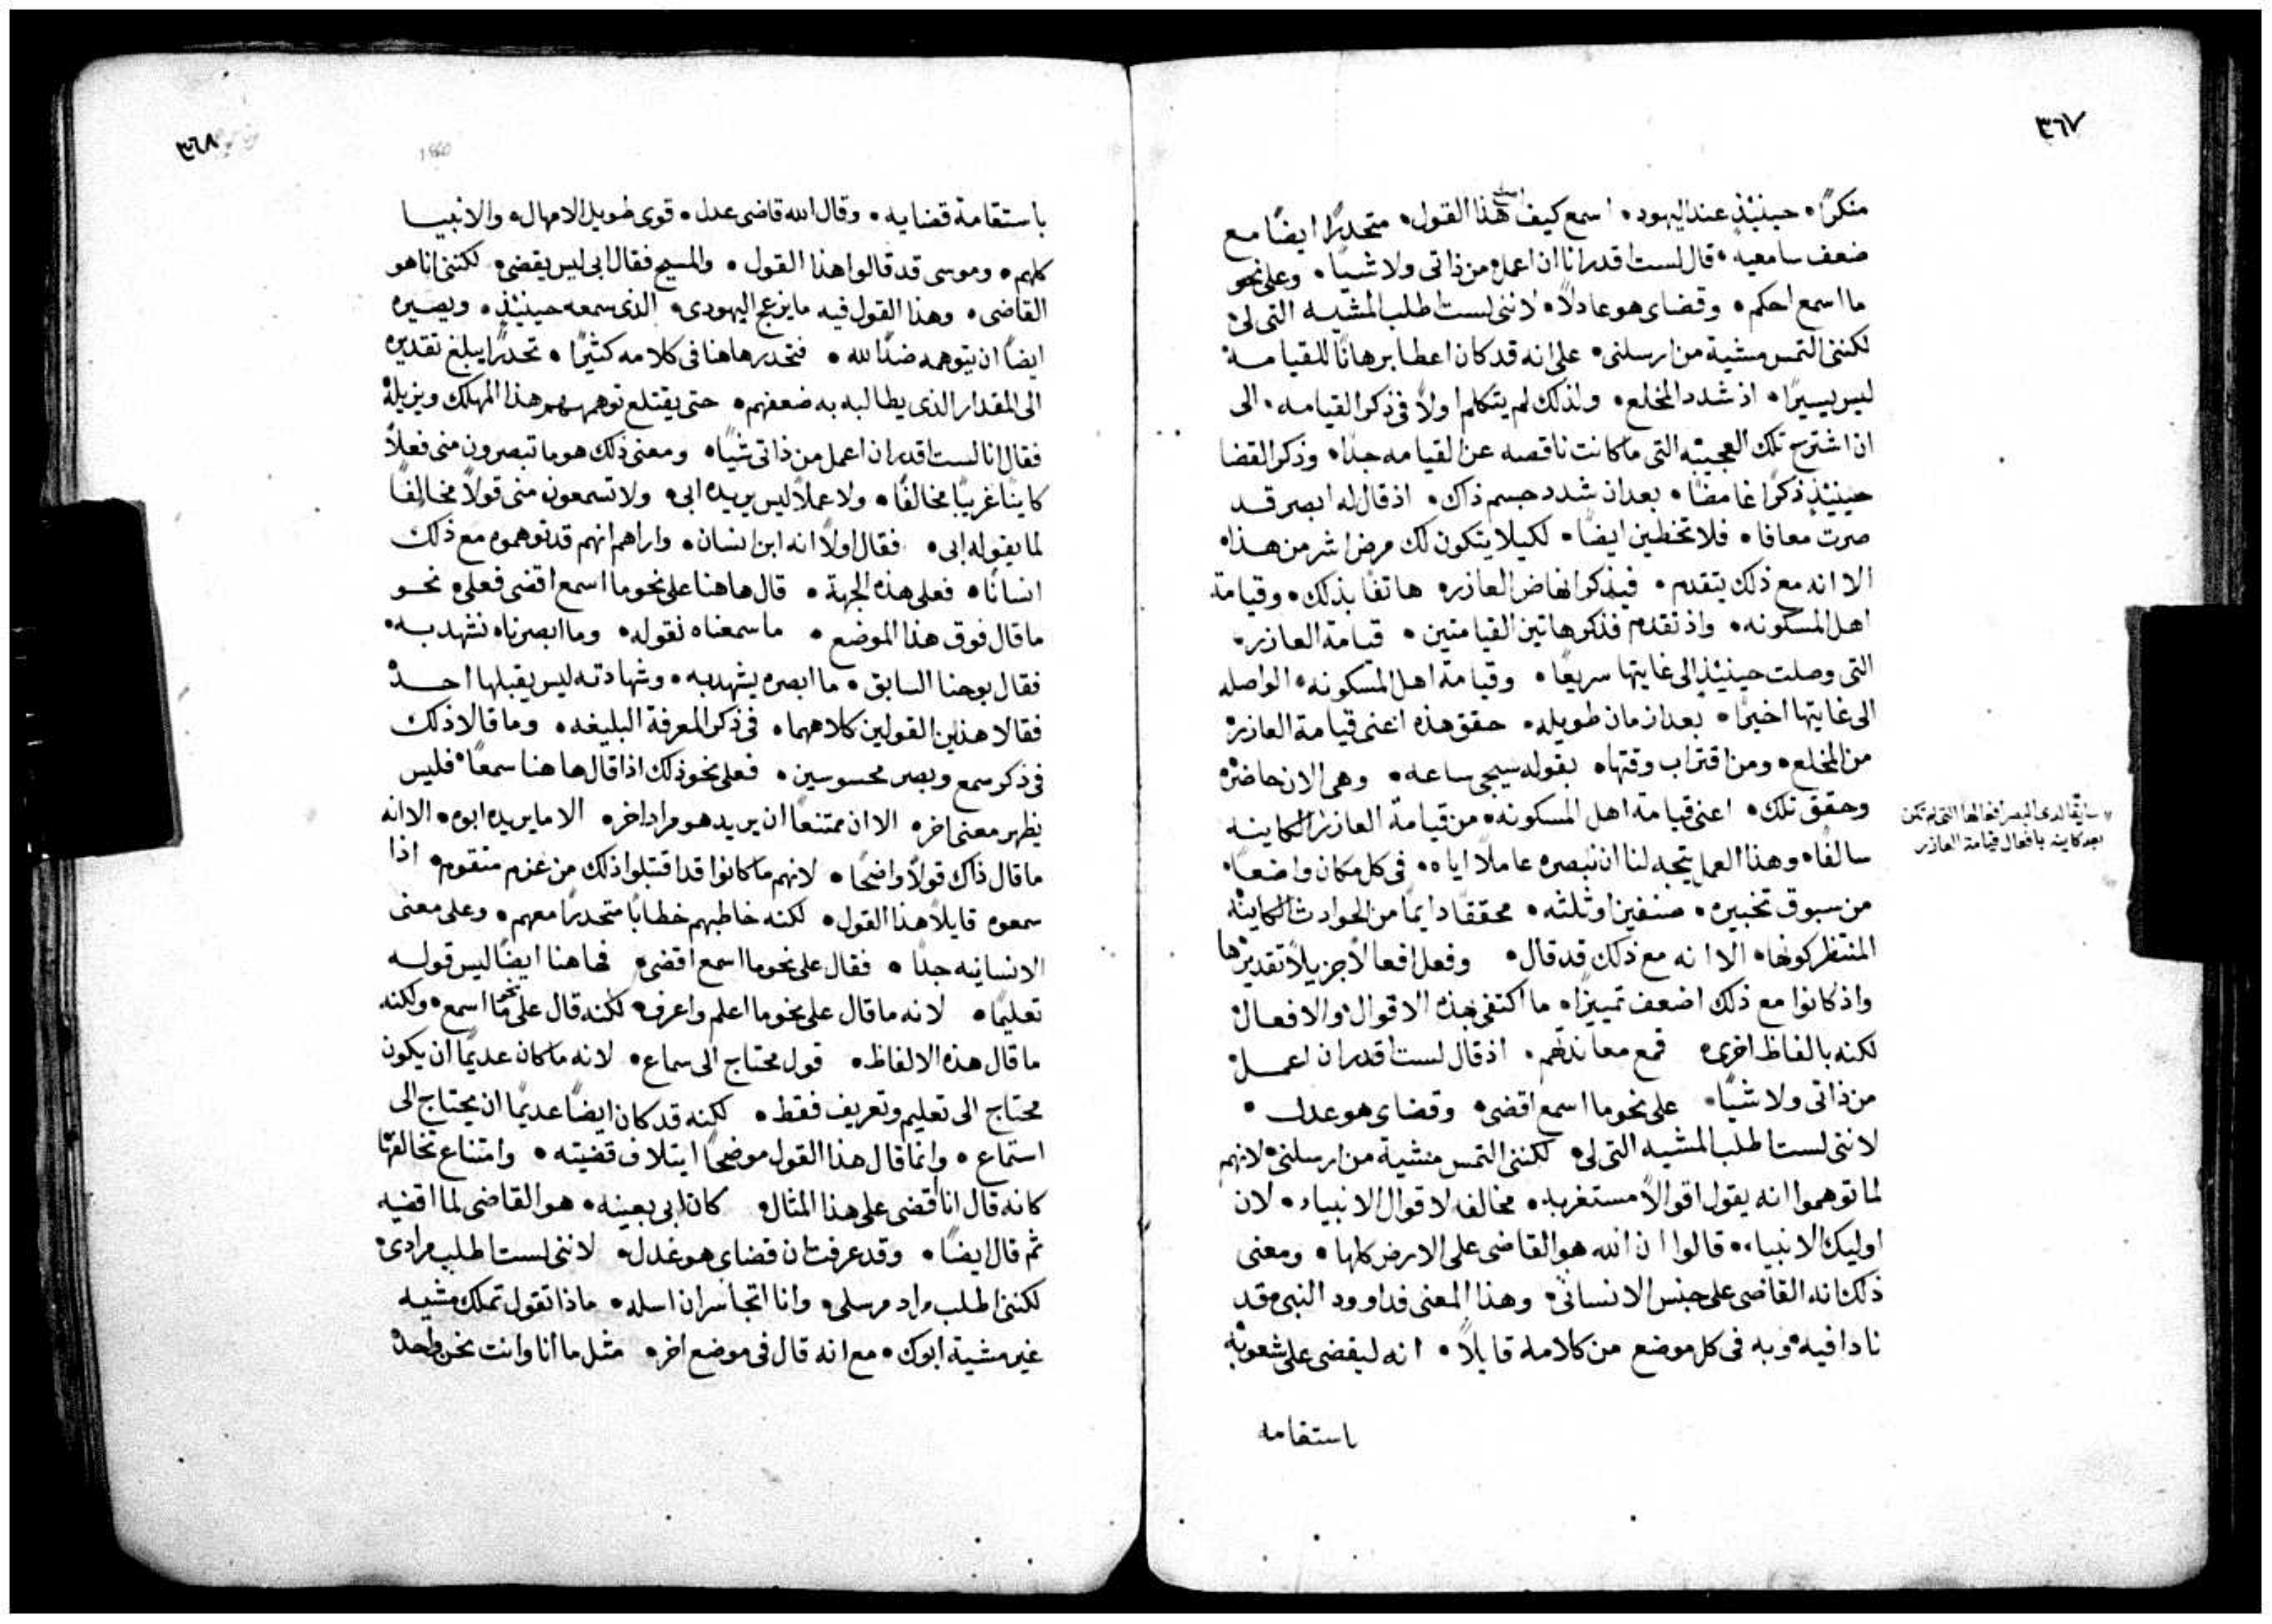 ٣٦٧
منكرًا • حينيذٍ عند اليهود • اسمع كيف هذا القول • متحدرًا ايضًا مع
ضعف سامعيه • قال لست اقدر انا ان اعمل من ذاتى ولا شيًا • وعلى نحو
ما اسمع احكم • وقضاى هو عادلاً • لاننى لست اطلب المشيه التى لى
لكننى التمس مشية من ارسلنى • على انه قد كان اعطا برهانًا للقيامه
ليس يسيرًا • اذ شدد المخلع • ولذلك لم يتكلم اولاً فى ذكر القيامه • الى
ان اشترح تلك العجيبه التى ما كانت ناقصه عن القيامه جدًا • وذكر القضا
حينيذٍ ذكرًا غامضًا • بعد ان شدد جسم ذاك • اذ قال له ابصر قد
صرت معافا • فلا تخطين ايضًا • لكيلا يتكون لك مرض اشر من هذا •
الا انه مع ذلك يتقدم • فيذكر انهاض العازر • هاتفًا بذلك • وقيامة
اهل المسكونه • واذ تقدم فذكر هاتين القيامتين • قيامة العازر •
التى وصلت حينيذٍ الى غايتها سريعًا • وقيامة اهل المسكونه • الواصله
الى غايتها اخيرًا • بعد ازمان طويله • حقق هذه اعنى قيامة العازر
من المخلع • ومن اقتراب وقتها • بقوله سيجى ساعه • وهى الان حاضره
وحقق تلك • اعنى قيامة اهل المسكونه • من قيامة العازر الكاينه
سابقًا لدى البصر افعالها التى لم تكن
بعد كاينه بافعال قيامة العازر
سالفًا • وهذا العمل يتجه لنا ان نبصره عاملاً اياه • فى كل مكان واضعًا •
من سبوق تخبيره • صنفين او ثلثه • محققًا دايمًا من الحوادث الكاينه
المنتظر كونها • الا انه مع ذلك قد قال • وفعل افعالاً جزيلاً تقديرها
واذ كانوا مع ذلك اضعف تمييزًا • ما اكتفى بهذه الاقوال والافعال
لكنه بالفاظ اخرى • قمع معاندتهم • اذ قال لست اقدر ان اعمل
من ذاتى ولا شيًا • على نحو ما اسمع اقضى • وقضاى هو عدل •
لاننى لست اطلب المشيه التى لى • لكننى التمس مشية من ارسلنى • لانهم
لما توهموا انه يقول اقوالاً مستغربه • مخالفه لاقوال الانبياء • لان
اوليك الانبياء • قالوا ان الله هو القاضى على الارض كلها • ومعنى
ذلك انه القاضى على جنس الانسانى • وهذا المعنى فداوود النبى قد
نادا فيه • وبه فى كل موضع من كلامه قايلاً • انه ليقضى على شعوبه
باستقامه
٣٦٨
باستقامة قضايه • وقال الله قاضى عدل • قوى طويل الامهال • والانبيا
كلهم • وموسى قد قالوا هذا القول • والمسيح فقال ابى ليس يقضى • لكننى انا هو
القاضى • وهذا القول فيه ما يزعج اليهودى • الذى سمعه حينيذٍ • ويصيره
ايضًا ان يتوهمه ضدًا لله • فتحدر هاهنا فى كلامه كثيرًا • تحدرًا يبلغ تقديره
الى المقدار الذى يطالبه به ضعفهم • حتى يقتلع توهمهم هذا المهلك ويزيله
فقال انا لست اقدر ان اعمل من ذاتى شيًا • ومعنى ذلك هو ما تبصرون منى فعلاً
كاينًا غريبًا مخالفًا • ولا عملاً ليس يريده ابى • ولا تسمعون منى قولاً مخالفًا
لما يقوله ابى • فقال اولاً انه ابن انسان • واراهم انهم قد توهموه مع ذلك
انسانًا • فعلى هذه الجهة • قال هاهنا على نحو ما اسمع اقضى فعلى • نحو
ما قال فوق هذا الموضع • ما سمعناه نقوله • وما ابصرناه نشهد به •
فقال يوحنا السابق • ما ابصره يشهد به • وشهادته ليس يقبلها احد
فقالا هذين القولين كلاهما • فى ذكر المعرفة البليغه • وما قالا ذلك
فى ذكر سمع وبصر محسوسين • فعلى نحو ذلك اذا قال هاهنا سمعًا • فليس
يظهر معنى اخر • الا ان ممتنعًا ان يريد هو مرادا اخر • الا ما يريده ابوه • الا انه
ما قال ذاك قولاً واضحًا • لانهم ما كانوا قد اقتبلوا ذلك من عزم متقوم • اذا
سمعوه قايلاً هذا القول • لكنه خاطبهم خطابًا متحدرًا معهم • وعلى معنى
الانسانيه جدًا • فقال على نحو ما اسمع اقضى • فهاهنا ايضًا ليس قوله
تعليمًا • لانه ما قال على نحو ما اعلم واعرف • لكنه قال على نحو ما اسمع • ولكنه
ما قال هذه الالفاظ • قول محتاج الى سماع • لانه ما كان عديمًا ان يكون
محتاج الى تعليم وتعريف فقط • لكنه قد كان ايضًا عديمًا ان يحتاج الى
استماع • وانما قال هذا القول موضحًا ايتلاف قضيته • وامتناع تخالفها
كانه قال انا اقضى على هذا المثال • كان ابى بعينه • هو القاضى لما اقضيه
ثم قال ايضًا • وقد عرفت ان قضاى هو عدل • لاننى لست اطلب مرادى •
لكننى اطلب مراد مرسلى • وانا اتجاسر ان اسله • ماذا تقول تملك مشيه
غير مشية ابوك • مع انه قال فى موضع اخر • مثل ما انا وانت نحن واحد